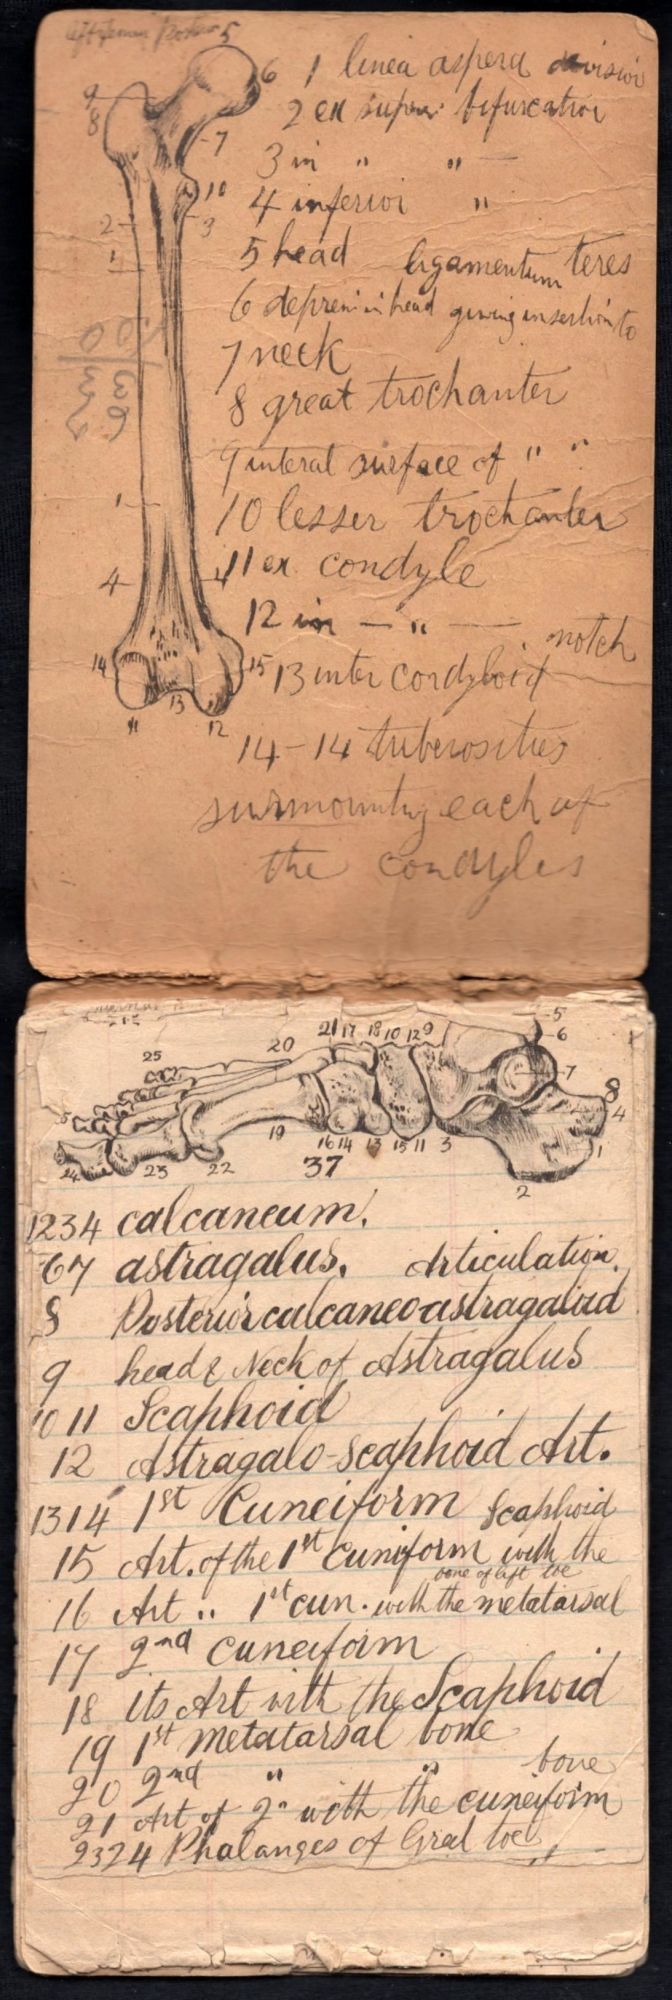 5
6
9
8
7
10
2
3
1
1
4
4
14
15
11
13
12
1 linea aspera division
2 ex super bifurcation
3 in " " —
4 inferior "
5 head ligamentum teres
6 depren in head giving insertion to
7 neck
8 great trochanter
9 interal surface of " "
10 lesser trochanter
11 ex condyle
12 in — " —
13 inter condyloid notch
14-14 tuberosities
surmounting each of
the condyles
21 17 18 10 12 9
5
6
7
8
4
1
20
25
5
24
23
22
19
16 14 13 15 11 3
2
37
1234 calcaneum.
67 astragalus. Articulation.
8 Posterior calcaneo-astragaloid
9 head & Neck of Astragalus
10 11 Scaphoid
12 Astragalo-Scaphoid Art.
1314 1st Cuneiform Scaphoid
15 Art. of the 1st Cuniform with the
bone of left toe
16 Art " 1st cun. with the metatarsal
17 2nd cuneiform
18 its Art with the Scaphoid
19 1st Metatarsal bone
20 2nd " " bone
21 Art of 2" with the cuneiform
2324 Phalanges of Grat toe